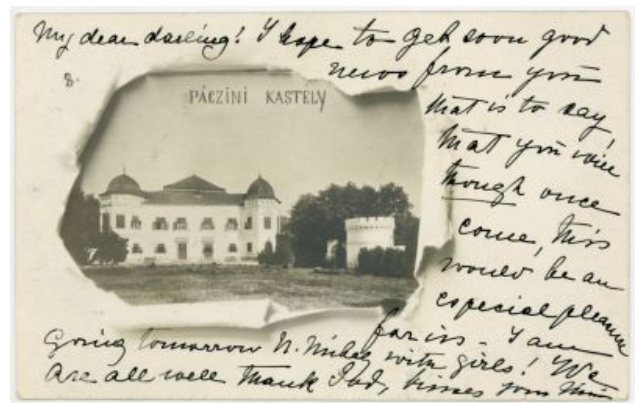 My dear darling! I hope to get soon good
news from you
8.
PÁCZINI KASTELY
that is to say,
that you will
though once
come, this
would be an
especial pleasure
for us - I am
Going tomorrow N. Mihály with girls! We
are all well thank God, kisses your
7